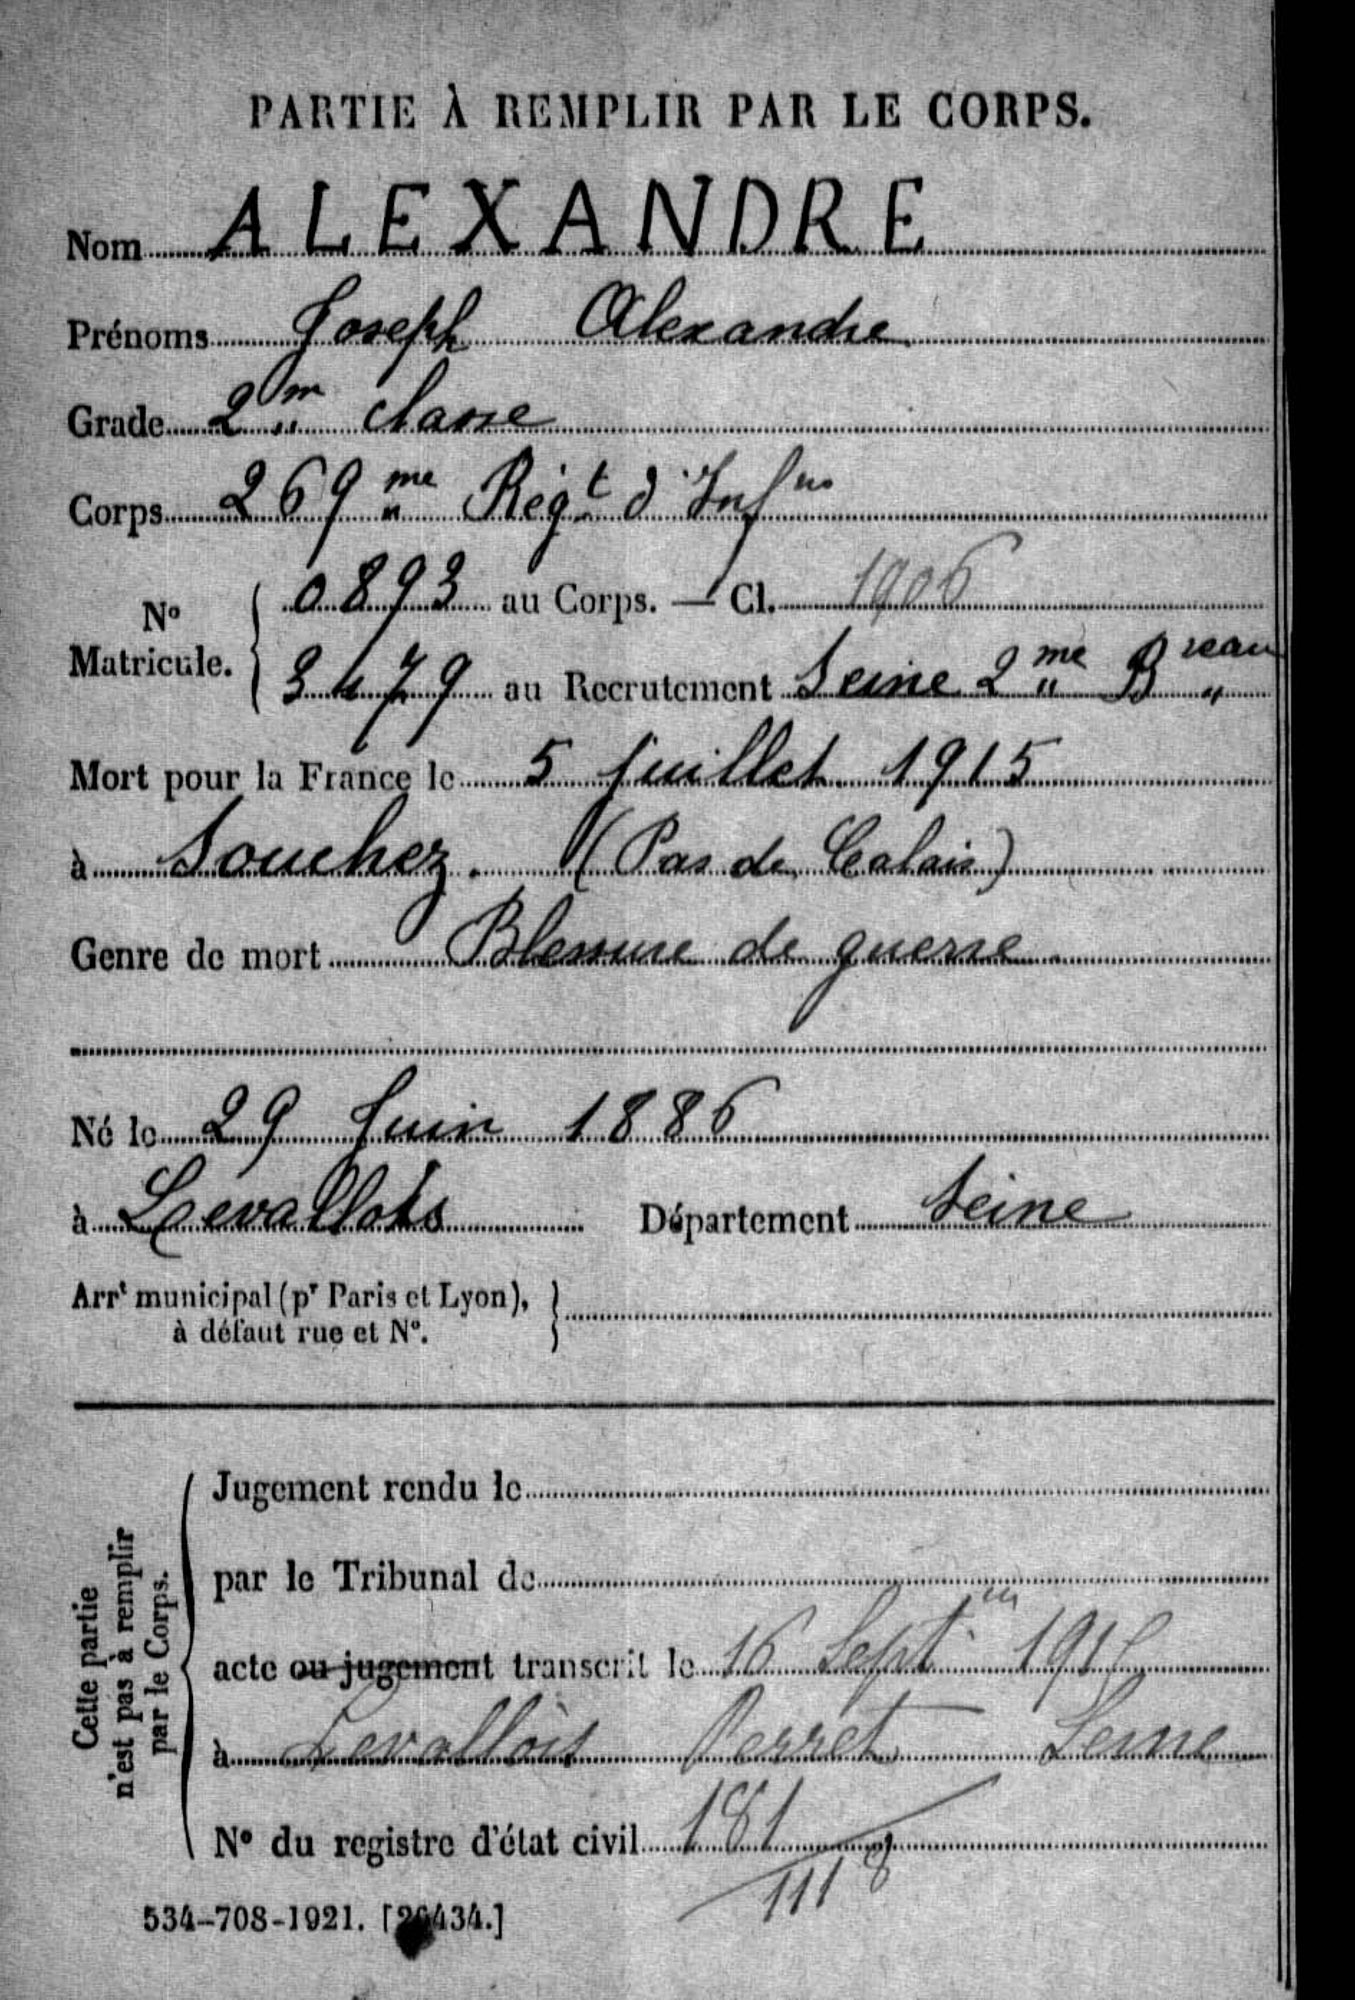 PARTIE À REMPLIR PAR LE CORPS.
Nom ALEXANDRE
Prénoms Joseph Alexandre
Grade 2me classe
Corps 269me Régt d'Infrie
No Matricule. { 0893 au Corps. — Cl. 1906
3479 au Recrutement Seine 2me Breau
Mort pour la France le 5 Juillet 1915
à Souchez. (Pas de Calais)
Genre de mort Blessure de guerre
Né le 29 Juin 1886
à Levallois Département Seine
Arrt municipal (pr Paris et Lyon),
à défaut rue et No.
Cette partie
n'est pas à remplir
par le Corps.
Jugement rendu le
par le Tribunal de
acte ou jugement transcrit le 16 Sept
à Levallois Perret Seine
No du registre d'état civil 181
1118
534-708-1921. [26434.]